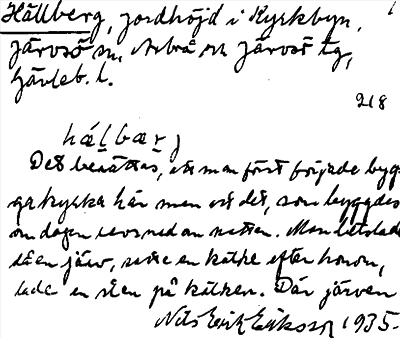 Hällberg, jordhöjd i Kyrkbyn,
Järvsö sn, Arbrå och Järvsö tg,
Gävleb. l.
218
hálbær̩j
Det berättas, att man först började byg-
ga kyrka här men att det, som byggdes
om dagen revs ned om natten. Man
så en järv, satte en kälke efter honom,
lade en sten på kälken. Där järven
Nils Erik Eriksson 1935.